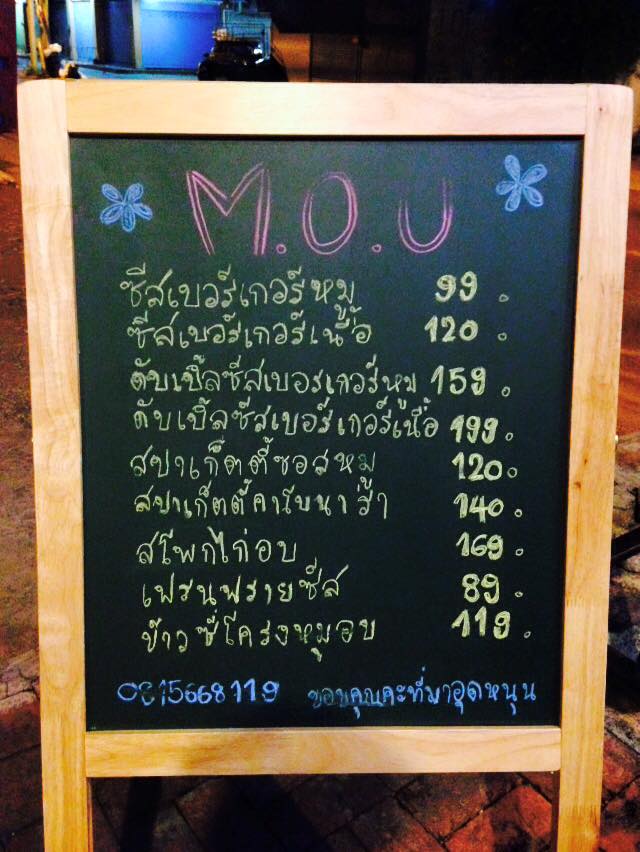 M.O.U
ชีสเบอร์เกอร์หมู 99.
ชีสเบอร์เกอร์เนื้อ 120.
ดับเบิ้ลชีสเบอรเกอร์หมู 159.
ดับเบิ้ลชีสเบอร์เกอร์เนื้อ 199.
สปาเก็ตตี้ซอสหมู 120.
สปาเก็ตตี้คาโบนาร่า 140.
สโพกไก่อบ 169.
เฟรนฟรายชีส 89.
ข้าวซี่โครงหมูอบ 119.
0815668119 ขอบคุณคะที่มาอุดหนุน